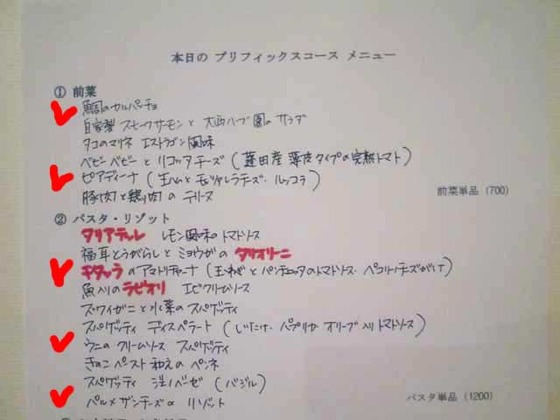 本日の プリフィックスコース メニュー
① 前菜
鯛のカルパッチョ
自家製 スモークサーモンと 大西ハーブ園の サラダ
タコのマリネ エストラゴン風味
ベビーベビーと リコッタチーズ (蓮田産 薄皮タイプの完熟トマト)
ピアディーナ (生ハムと モッツァレラチーズ・ルッコラ)
豚肉と鶏肉の テリーヌ
前菜単品 (700)
② パスタ・リゾット
タリアテッレ レモン風味の トマトソース
福耳とうがらしと ミョウガの タリオリーニ
キタッラ のアマトリチャーナ (玉ねぎと パンチェッタのトマトソース・ペコリーノチーズがけ)
魚入りの ラビオリ エビクリームソース
ズワイガニと 水菜の スパゲッティ
スパゲッティ ディスペラート (しいたけ・パプリカ オリーブ入りトマトソース)
ウニの クリームソース スパゲッティ
きのこペースト和えの ペンネ
スパゲッティ ジェノベーゼ (バジル)
パルメザンチーズの リゾット
パスタ単品 (1200)